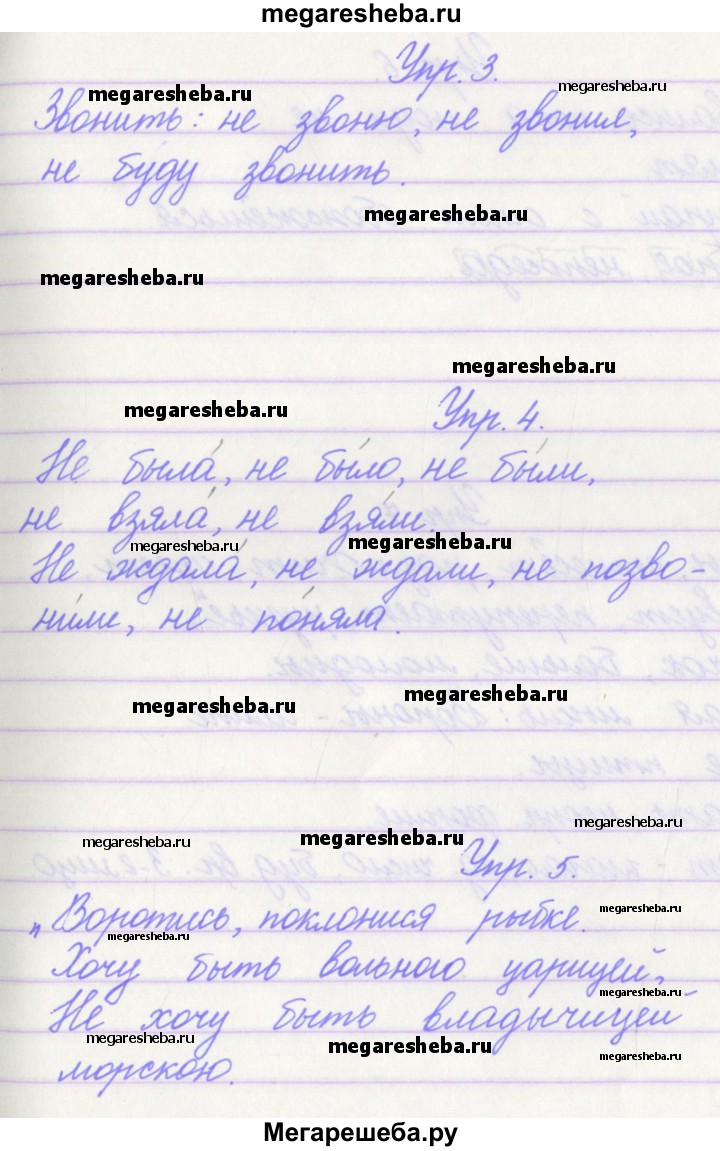 megaresheba.ru
Упр. 3.
megaresheba.ru
megaresheba.ru
Звонить: не звоню, не звонил,
не буду звонить.
megaresheba.ru
megaresheba.ru
megaresheba.ru
megaresheba.ru
Упр. 4.
Не была́, не бы́ло, не бы́ли,
не взяла́, не взя́ли.
megaresheba.ru
megaresheba.ru
Не ждала́, не жда́ли, не позво-
ни́ли, не по́няла.
megaresheba.ru
megaresheba.ru
megaresheba.ru
megaresheba.ru
megaresheba.ru
Упр. 5.
„Воротись, поклонися рыбке.
megaresheba.ru
megaresheba.ru
Хочу быть вольною царицей,
megaresheba.ru
Не хочу быть владычицей
megaresheba.ru
megaresheba.ru
megaresheba.ru
морскою.
Мегарешеба.ру